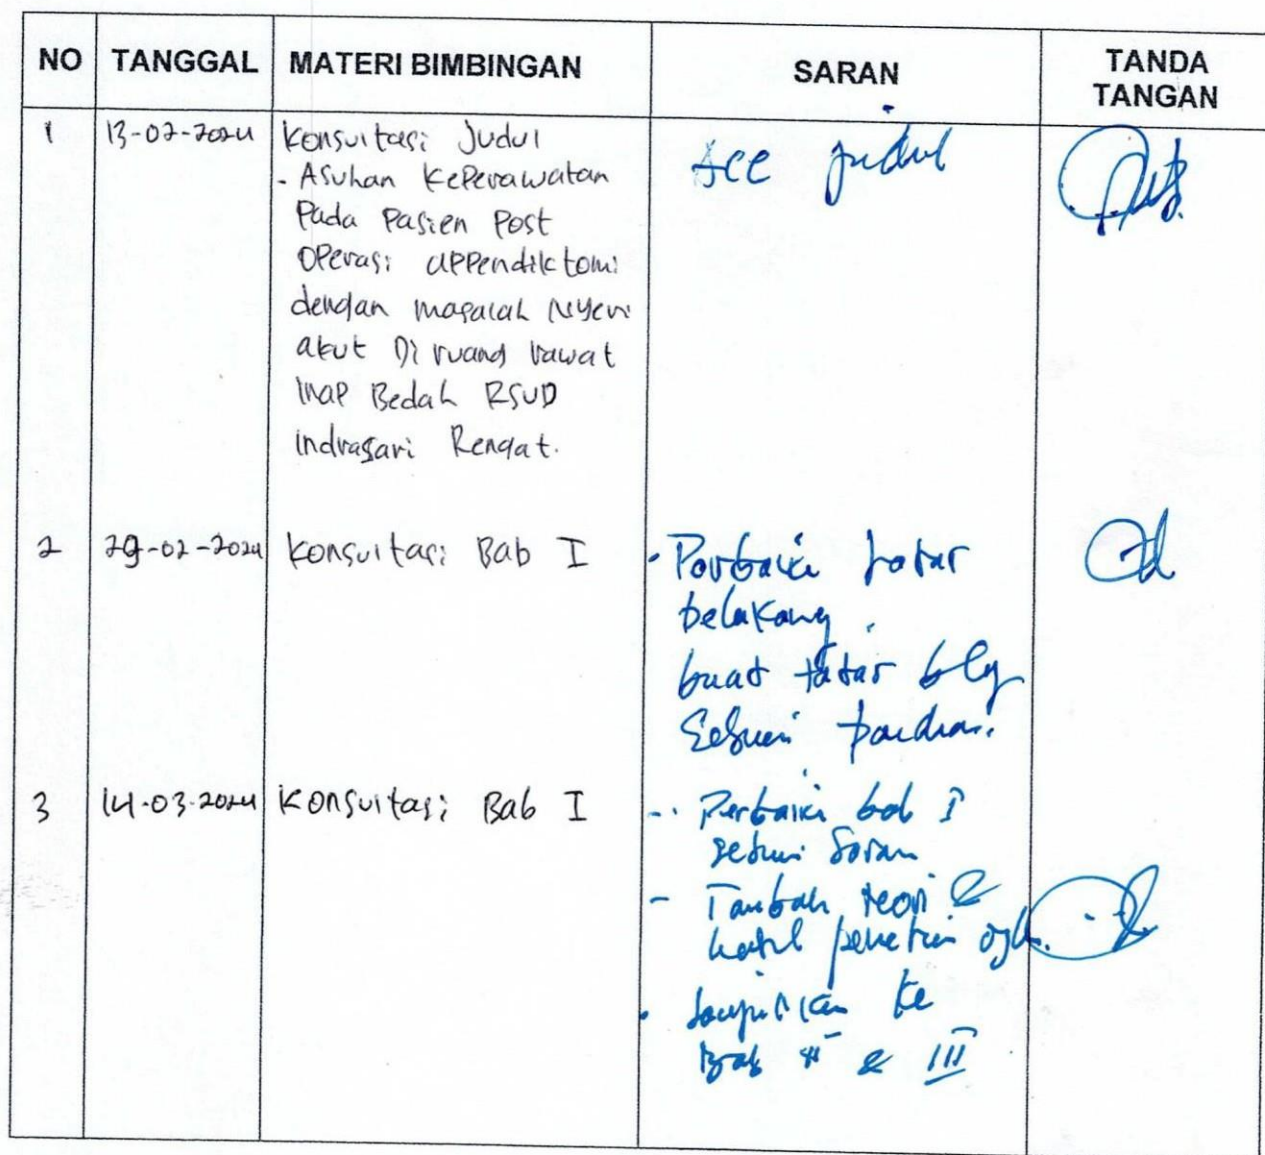 NO TANGGAL MATERI BIMBINGAN SARAN TANDA TANGAN
1 13-02-2024 Konsultasi Judul
Acc judul
- Asuhan Keperawatan
Pada Pasien Post
Operasi appendiktomi
dengan masalah Nyeri
akut Di ruang rawat
Inap Bedah RSUD
Indrasari Rengat.
2 29-02-2024 Konsultasi Bab I
- Perbaiki latar
belakang
buat latar blkg
Sesuai panduan.
3 14-03-2024 Konsultasi Bab I
- Perbaiki bab I
sesuai saran
- Tambah teori &
hasil
- Lanjutkan ke
Bab II & III